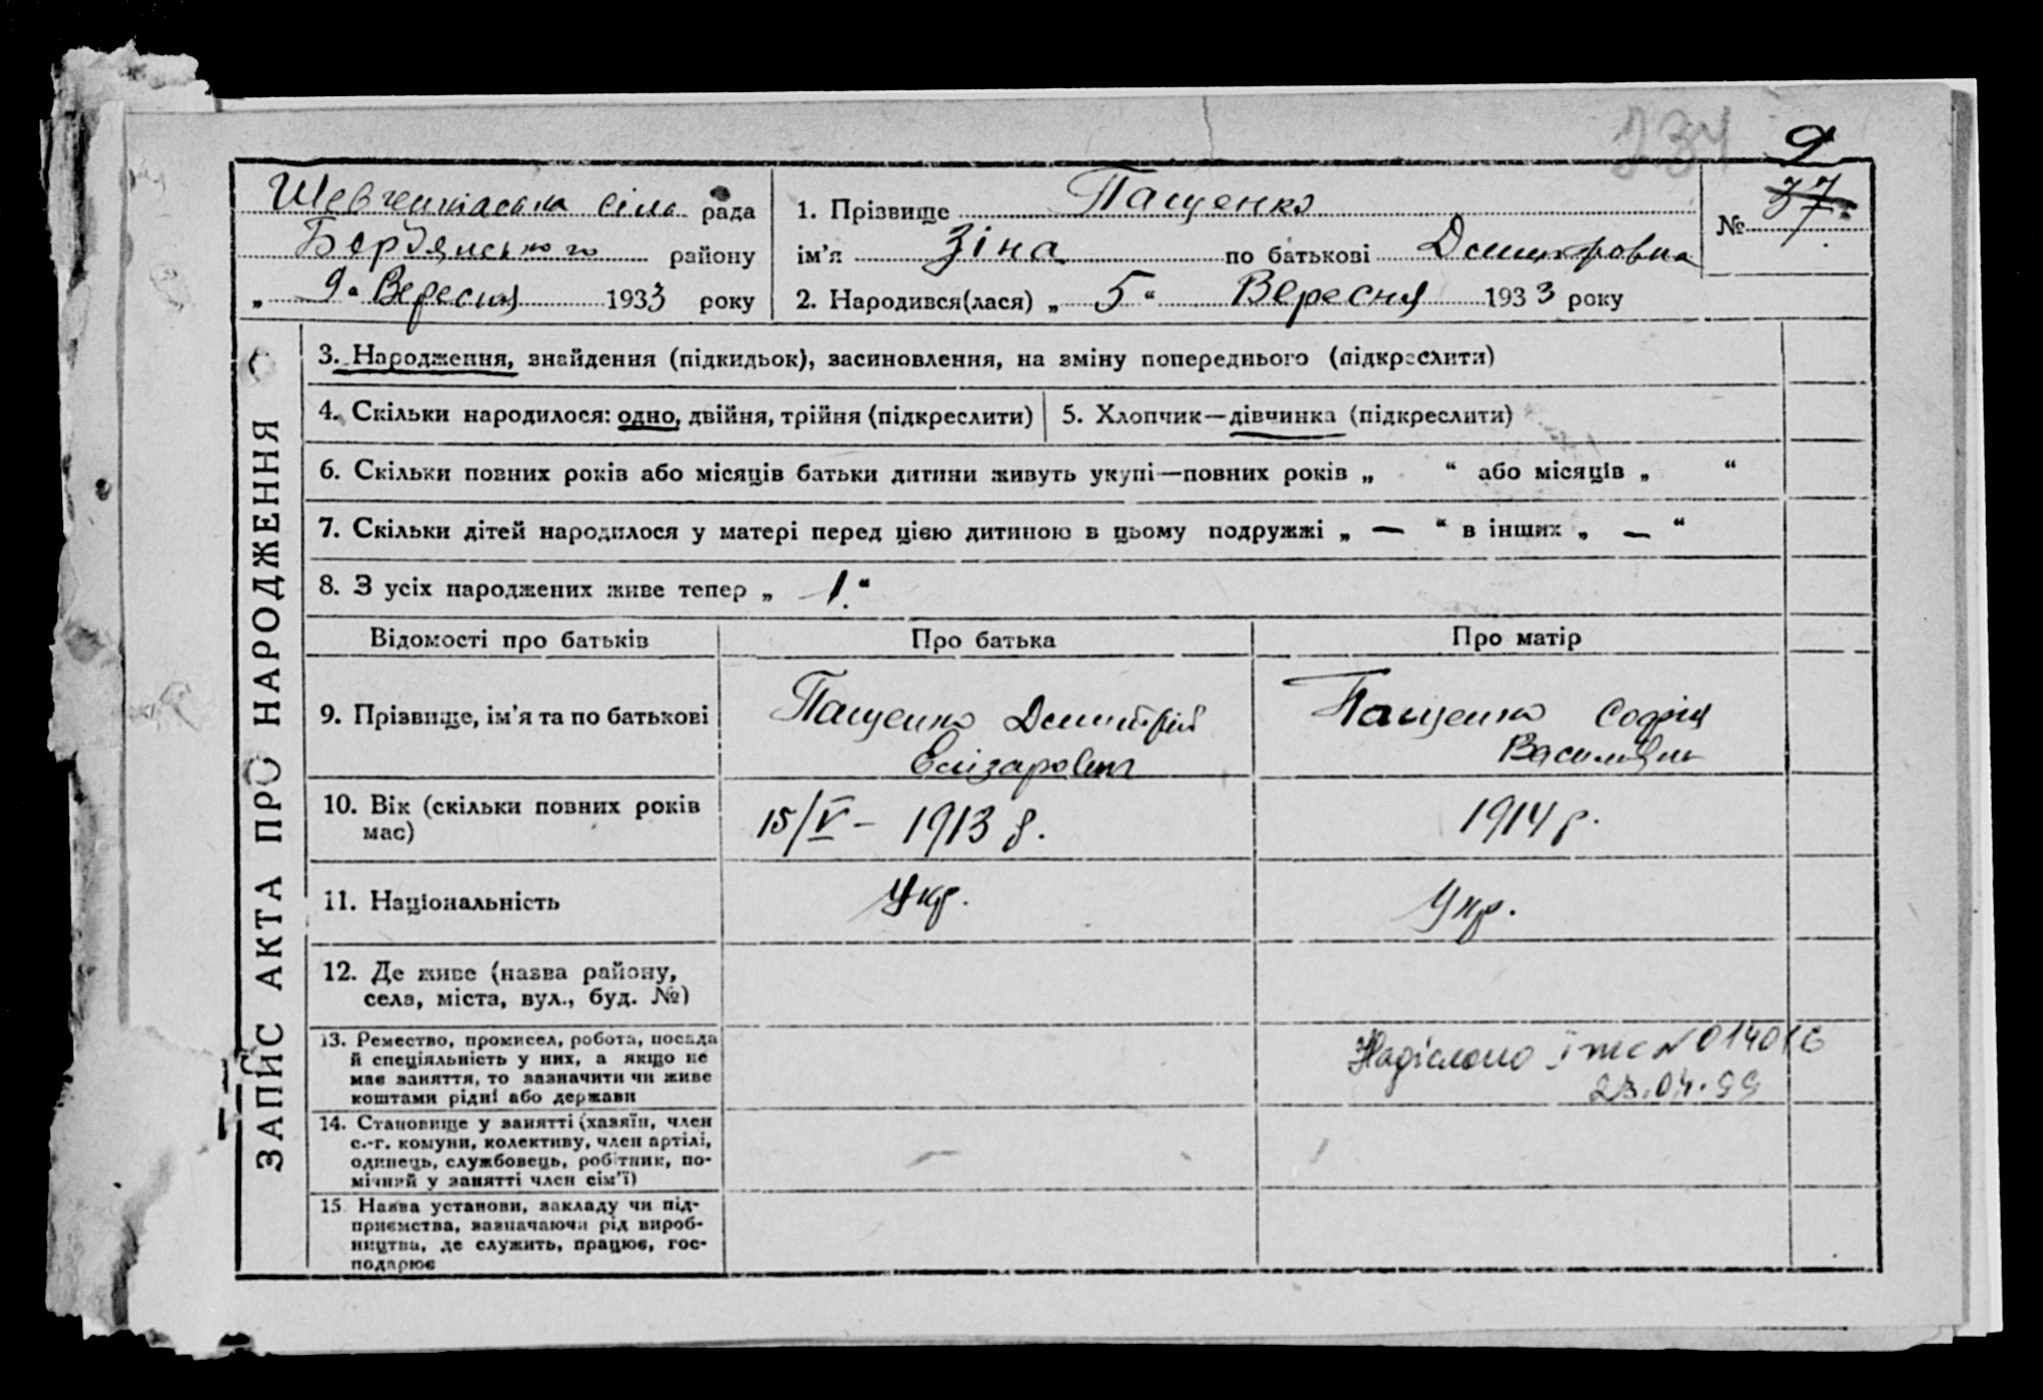 234
9
Шевченківська сіль рада
Бердянського району
„ 9 “ Вересня 1933 року
1. Прізвище Пащенко
№ 37
ім'я Зіна по батькові Дмитровна
2. Народився(лася) „ 5 “ Вересня 1933 року
ЗАПИС АКТА ПРО НАРОДЖЕННЯ
3. Народження, знайдення (підкидьок), засиновлення, на зміну попереднього (підкреслити)
4. Скільки народилося: одно, двійня, трійня (підкреслити)
5. Хлопчик—дівчинка (підкреслити)
6. Скільки повних років або місяців батьки дитини живуть укупі—повних років „ “ або місяців „ “
7. Скільки дітей народилося у матері перед цією дитиною в цьому подружжі „ — “ в інших „ — “
8. З усіх народжених живе тепер „ 1. “
Відомості про батьків
Про батька
Про матір
9. Прізвище, ім'я та по батькові
Пащенко Дмитрій
Елізарович
Пащенко Софія
10. Вік (скільки повних років
має)
15/V – 1913 р.
1914 р.
11. Національність
Укр.
Укр.
12. Де живе (назва району,
села, міста, вул., буд. №)
13. Ремество, промисел, робота, посада
й спеціяльність у них, а якщо не
має заняття, то зазначити чи живе
коштами рідні або держави
Надіслано N 014016
23.04.99
14. Становище у занятті (хазяїн, член
с.-г. комуни, колективу, член артілі,
одинець, службовець, робітник, по-
мічний у занятті член сім'ї)
15 Назва установи, закладу чи під-
приємства, зазначаючи рід вироб-
ництва, де служить, працює, гос-
подарює